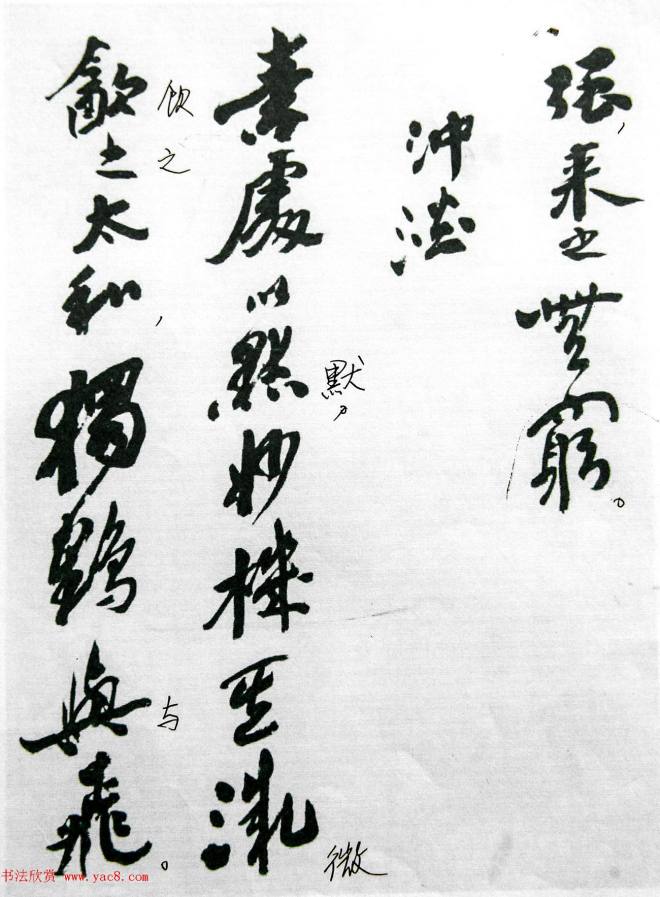 强,来之無窮。
沖澹
素處以默妙機其微
默,
微
飲之太和,獨鶴與飛。
饮之
与
书法欣赏 www.yac8.com